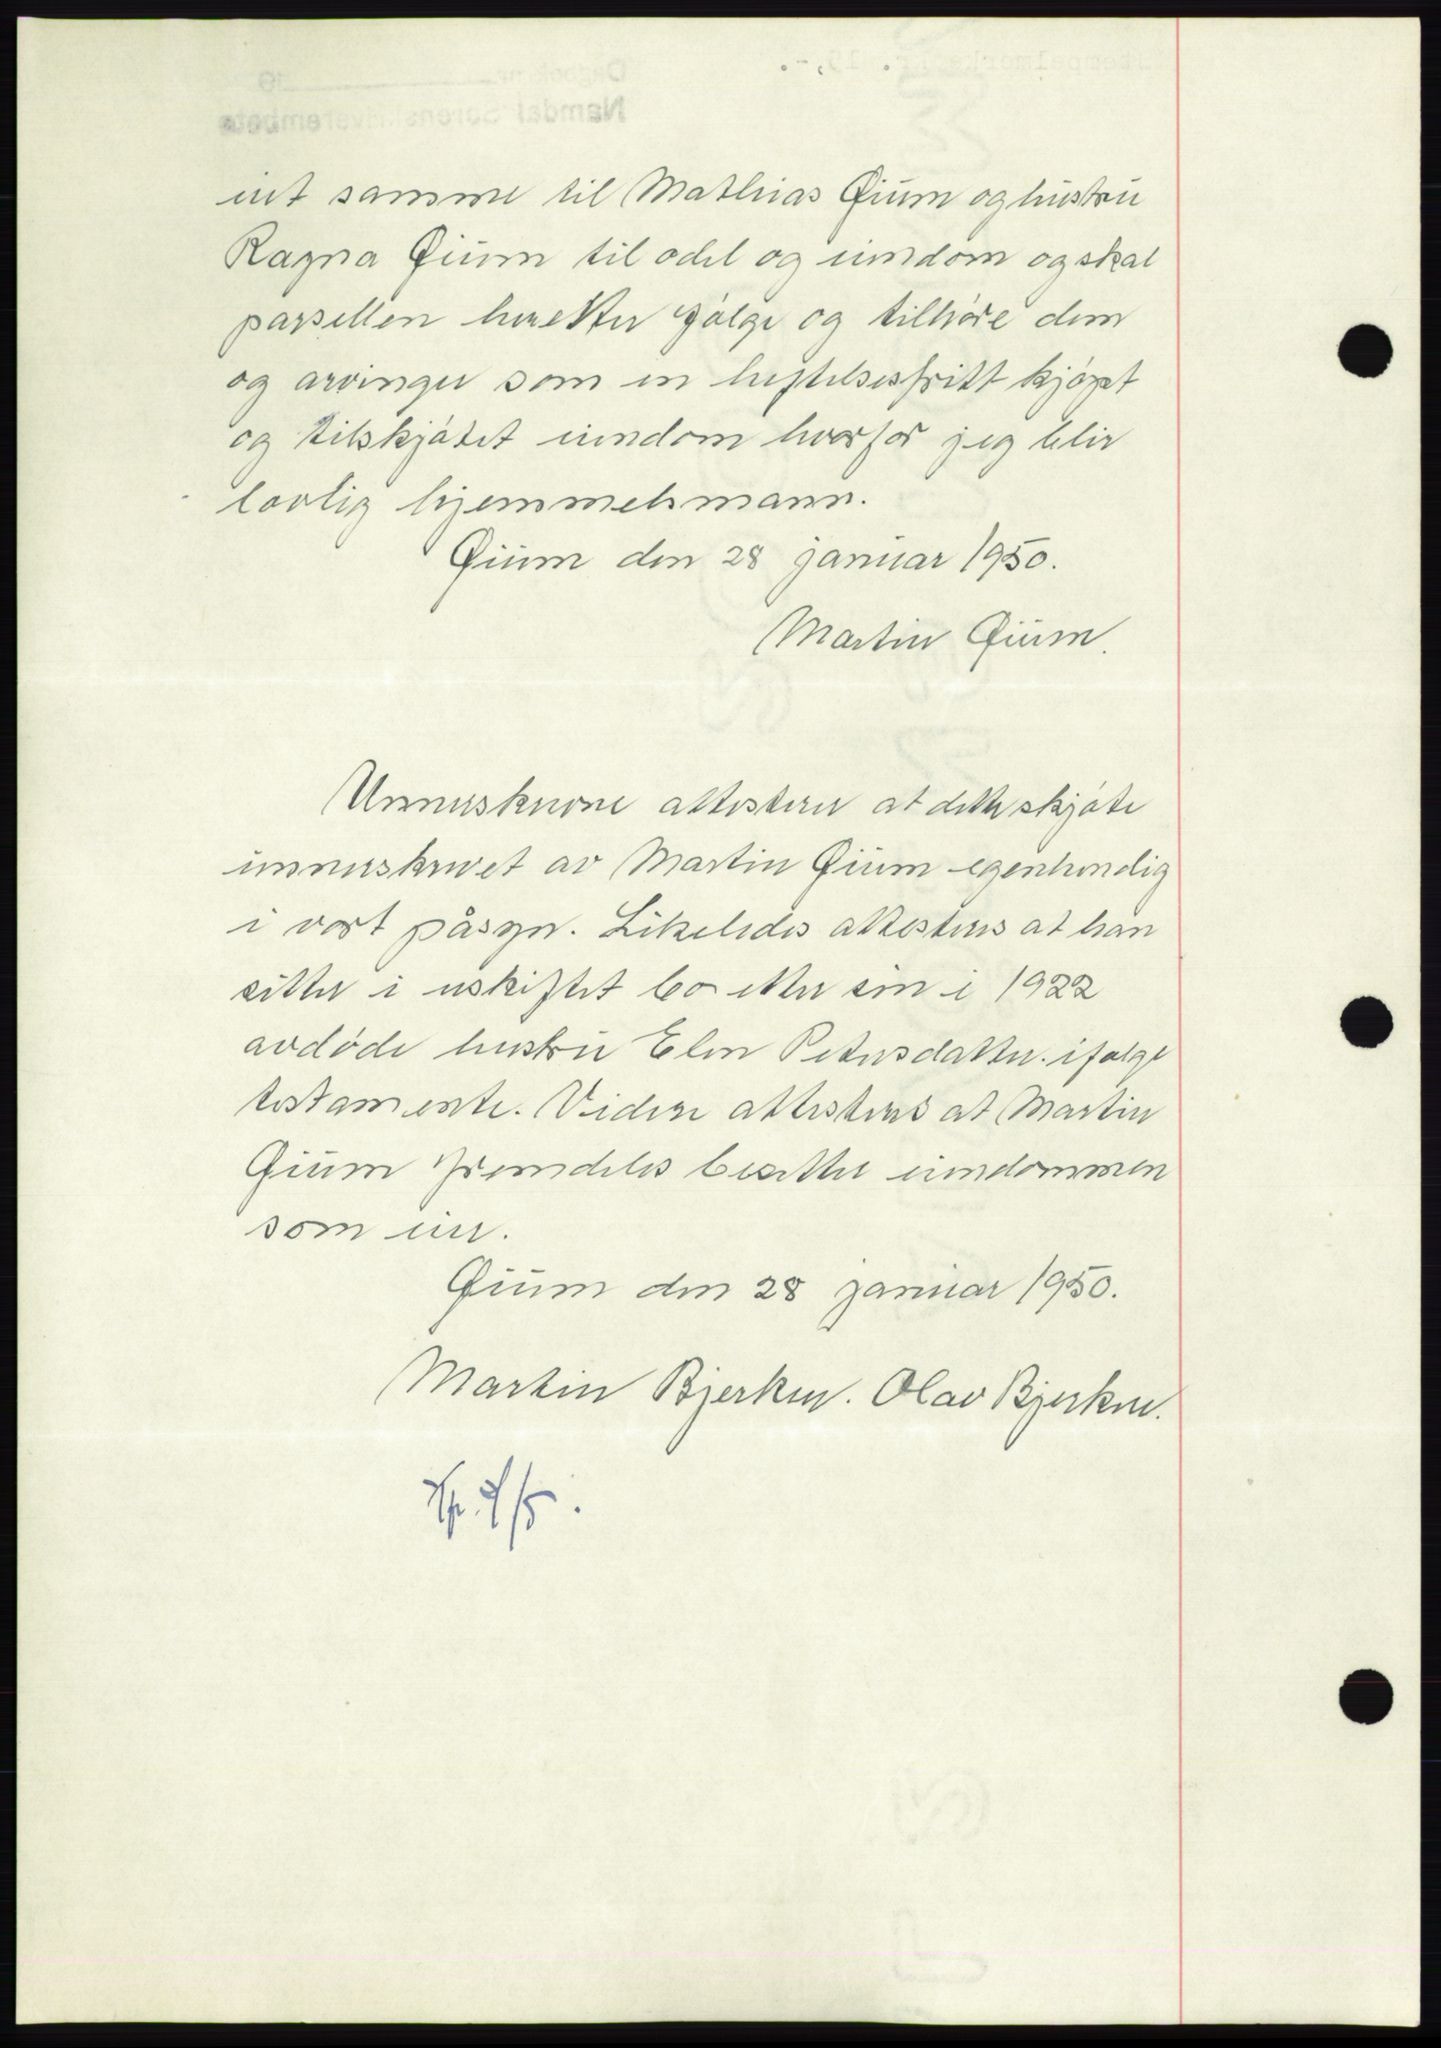 eiet samme til Mathias Øium og hustru
Ragna Øium til odel og eiendom og skal
parsellen herefter følge og tilhøre dem
og arvinger som en heftelsesfritt kjøpt
og tilskjøtet eiendom hvorfor jeg blir
lovlig hjemmelsmann.
Øium den 28 januar 1950.
Martin Øium.
Unnerskrevne attesterer at dette skjøte
unnerskrevet av Martin Øium egenhendig
i vort påsyn. Likeledes attesteres at han
sitter i uskiftet bo etter sin i 1922
avdøde hustru Elen Petersdatter. ifølge
testamente. Videre attesteres at Martin
Øium fremdeles besitter eiendommen
som eier.
Øium den 28 januar 1950.
Martin Bjerken. Olav Bjerken.